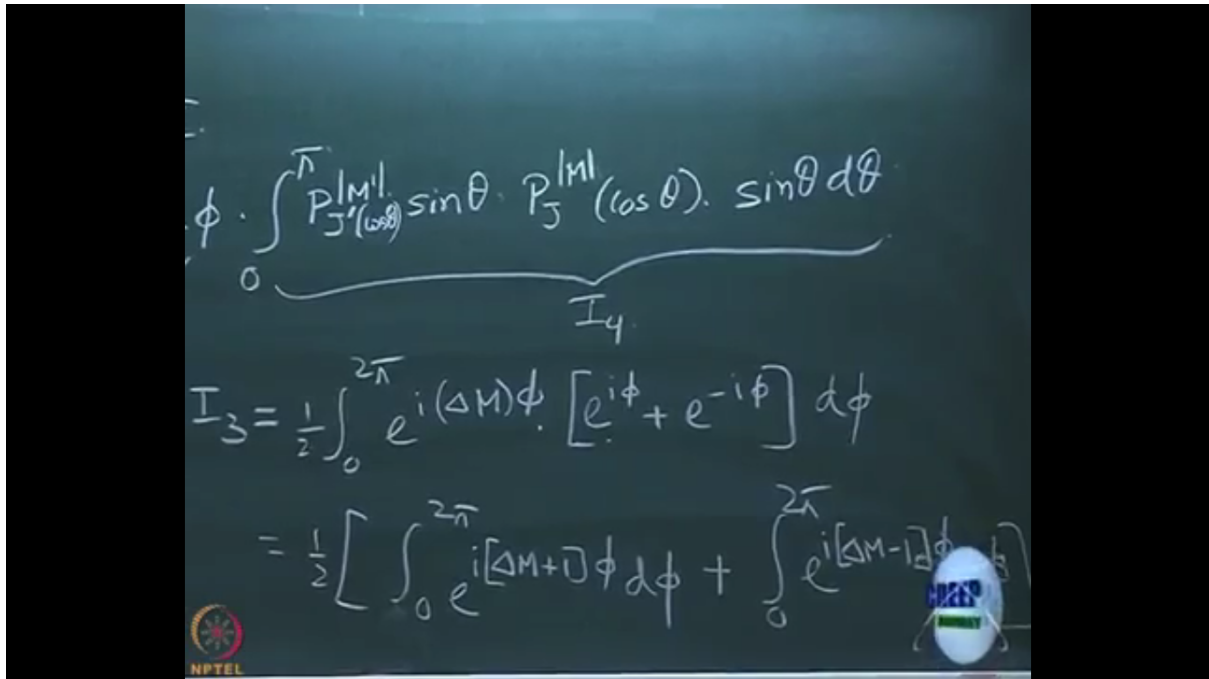 I.
φ · ∫₀^π P_J'^|M'| (cosθ) sinθ · P_J^|M| (cosθ). sinθ dθ
I₄.
I₃ = 1/2 ∫₀^2π e^i(ΔM)φ. [e^iφ + e^-iφ] dφ
= 1/2 [ ∫₀^2π e^i[ΔM+1]φ dφ + ∫₀^2π e^i[ΔM-1]φ
NPTEL